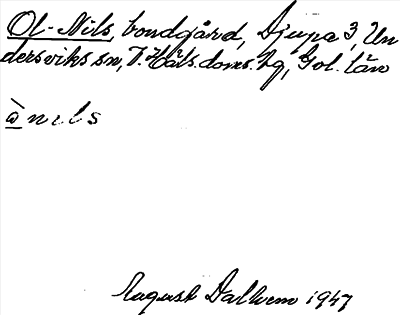 Ol-Nils, bondgård, Djupa 3, Un
dersviks sn, V. Häls. doms. hg, Gvl. län
ò nils
August Dalhem 1947